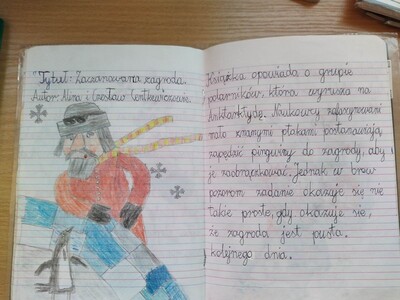 Tytuł: Zaczarowana zagroda
Autor: Alina i Czesław Centkiewiczowie.
Książka opowiada o grupie
polarników, która wyrusza na
Antarktydę. Naukowcy zafascynowani
mało znanymi ptakami, postanawiają
zapędzić pingwiny do zagrody, aby
je zaobrączkować. Jednak w brew
pozorom zadanie okazuje się nie
takie proste, gdy okazuje się,
że zagroda jest pusta.
kolejnego dnia.